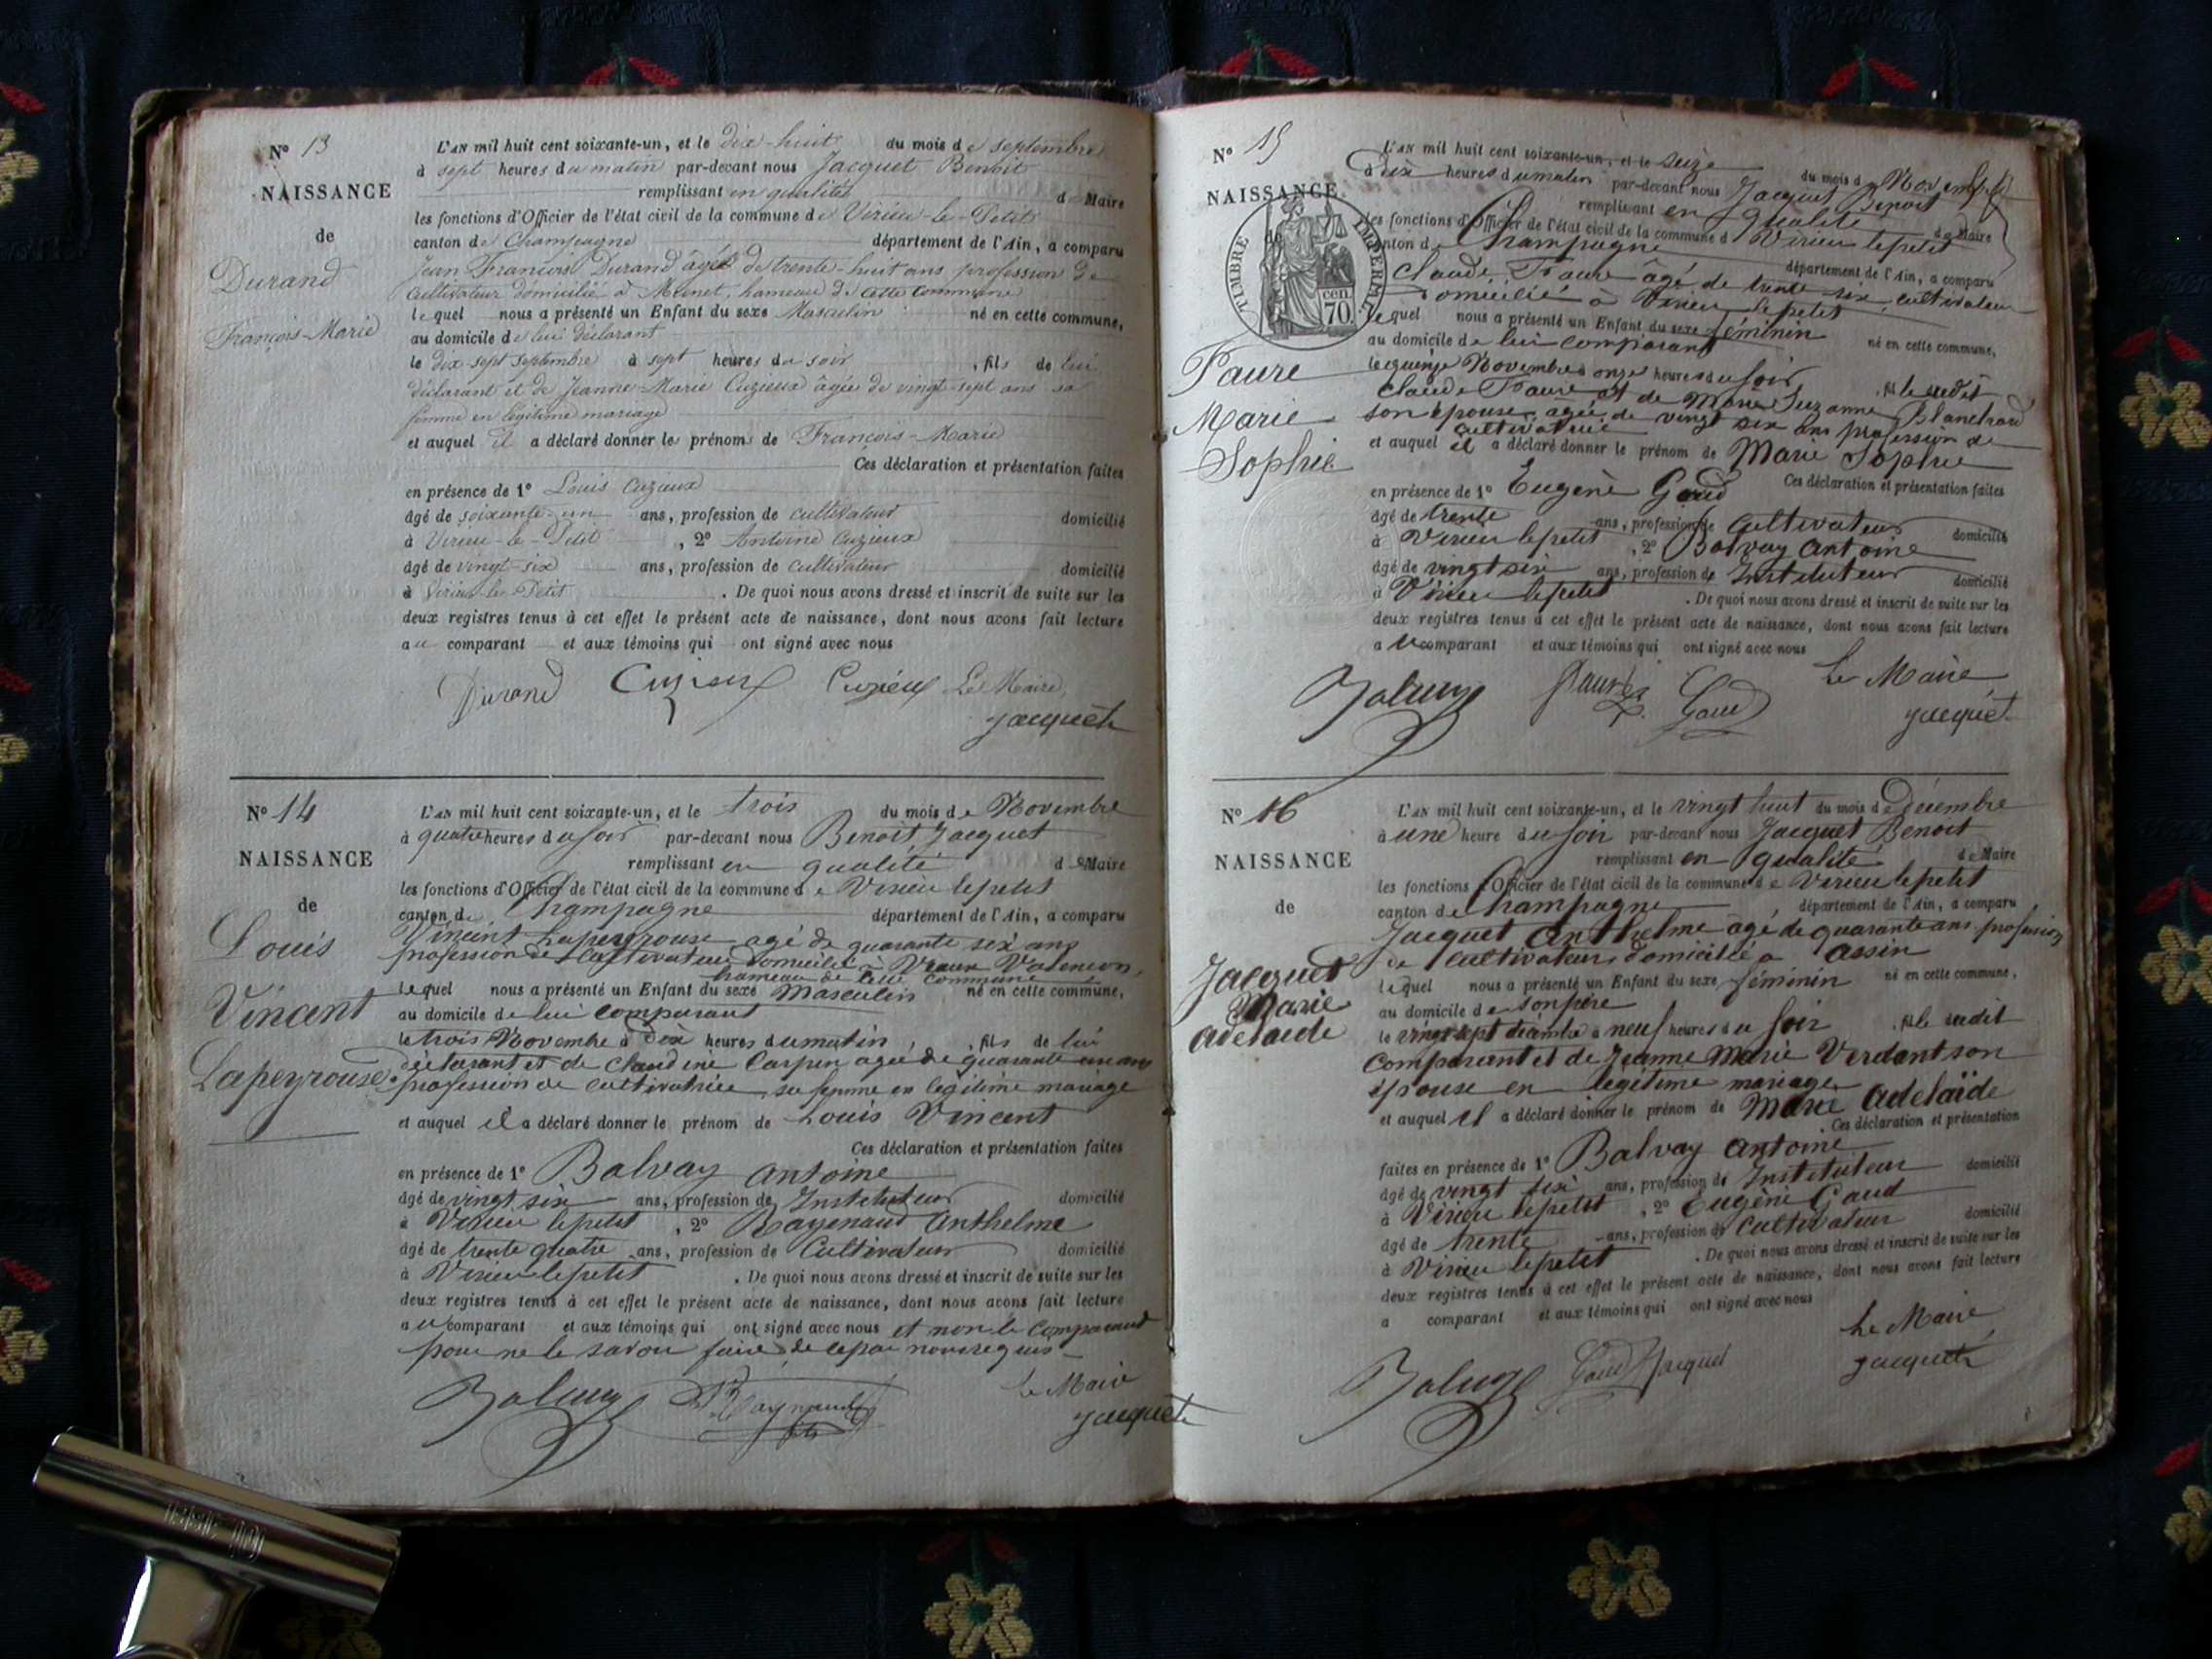 N° 13
NAISSANCE
de
Durand
François-Marie
L'AN mil huit cent soixante-un, et le dix-huit du mois de septembre
à sept heures du matin par-devant nous Jacquet Benoit
remplissant en qualité de Maire
les fonctions d'Officier de l'état civil de la commune de Virieu-le-Petit
canton de Champagne département de l'Ain, a comparu
Jean-François Durand âgé de trente-huit ans profession de
cultivateur domicilié à Munet, hameau de cette commune
lequel nous a présenté un Enfant du sexe Masculin né en cette commune,
au domicile de lui déclarant
le dix-sept septembre à sept heures du soir, fils de lui
déclarant et de Jeanne-Marie Cuzieux agée de vingt-sept ans sa
femme en légitime mariage
et auquel il a déclaré donner les prénoms de François-Marie
Ces déclaration et présentation faites
en présence de 1° Louis Cuzieux
âgé de soixante-un ans, profession de cultivateur domicilié
à Virieu-le-Petit, 2° Antoine Cuzieux
âgé de vingt-six ans, profession de cultivateur domicilié
à Virieu-le-Petit. De quoi nous avons dressé et inscrit de suite sur les
deux registres tenus à cet effet le présent acte de naissance, dont nous avons fait lecture
au comparant et aux témoins qui ont signé avec nous
Durand Cuzieux Cuzieux Le Maire,
Jacquet
N° 14
NAISSANCE
de
Louis
Vincent
Lapeyrouse
L'AN mil huit cent soixante-un, et le trois du mois de Novembre
à quatre heures du soir par-devant nous Benoit Jacquet
remplissant en qualité de Maire
les fonctions d'Officier de l'état civil de la commune de Virieu lepetit
canton de Champagne département de l'Ain, a comparu
Vincent Lapeyrouse agé de quarante six ans
profession de Cultivateur domicilié à Vraux Valencon,
hameau de cette commune
lequel nous a présenté un Enfant du sexe Masculin né en cette commune,
au domicile de lui comparant
le trois Novembre à dix heures du matin, fils de lui
déclarant et de Claudine Carpin agée de quarante un ans
profession de cultivatrice, sa femme en légitime mariage
et auquel il a déclaré donner le prénom de Louis Vincent
Ces déclaration et présentation faites
en présence de 1° Balvay Antoine
âgé de vingt six ans, profession de Instituteur domicilié
à Virieu lepetit, 2° Raynaud Anthelme
âgé de trente quatre ans, profession de Cultivateur domicilié
à Virieu lepetit. De quoi nous avons dressé et inscrit de suite sur les
deux registres tenus à cet effet le présent acte de naissance, dont nous avons fait lecture
au comparant et aux témoins qui ont signé avec nous et non le comparant
pour ne le savoir faire de ce par nous requis
Balvay Raynaud Le Maire
Jacquet
N° 15
NAISSANCE
de
TIMBRE IMPERIAL
cen.
70
Faure
Marie
Sophie
L'AN mil huit cent soixante-un, et le seize du mois de Novembre
à dix heures du matin par-devant nous Jacquet Benoit
remplissant en qualité de Maire
les fonctions d'Officier de l'état civil de la commune de Virieu lepetit
canton de Champagne département de l'Ain, a comparu
Claude Faure âgé de trente six, cultivateur
domicilié à Virieu lepetit
lequel nous a présenté un Enfant du sexe féminin né en cette commune,
au domicile de lui comparant
le quinze Novembre à onze heures du soir, fil le susdit
Claude Faure et de Marie Suzanne Blanchard
son épouse, agée de vingt six ans profession de
cultivatrice
et auquel il a déclaré donner le prénom de Marie Sophie
Ces déclaration et présentation faites
en présence de 1° Eugène Gaud
âgé de trente ans, profession de Cultivateur domicilié
à Virieu lepetit, 2° Balvay Antoine
âgé de vingt six ans, profession de Instituteur domicilié
à Virieu lepetit. De quoi nous avons dressé et inscrit de suite sur les
deux registres tenus à cet effet le présent acte de naissance, dont nous avons fait lecture
au comparant et aux témoins qui ont signé avec nous
Balvay Faure Gaud Le Maire
Jacquet
N° 16
NAISSANCE
de
Jacquet
Marie
Adelaide
L'AN mil huit cent soixante-un, et le vingt huit du mois de Décembre
à une heure du soir par-devant nous Jacquet Benoit
remplissant en qualité de Maire
les fonctions d'Officier de l'état civil de la commune de Virieu lepetit
canton de Champagne département de l'Ain, a comparu
Jacquet Anthelme âgé de quarante ans profession
de cultivateur, domicilié a assin
lequel nous a présenté un Enfant du sexe féminin né en cette commune,
au domicile de son père
le vingt sept décembre à neuf heures du soir, fil le susdit
comparant et de Jeanne Marie Verdant son
épouse en légitime mariage
et auquel il a déclaré donner le prénom de Marie Adelaïde
Ces déclaration et présentation
faites en présence de 1° Balvay Antoine
âgé de vingt six ans, profession de Instituteur domicilié
à Virieu lepetit, 2° Eugène Gaud
âgé de trente ans, profession de cultivateur domicilié
à Virieu lepetit. De quoi nous avons dressé et inscrit de suite sur les
deux registres tenus à cet effet le présent acte de naissance, dont nous avons fait lecture
a comparant et aux témoins qui ont signé avec nous
Balvay Gaud Jacquet Le Maire
Jacquet